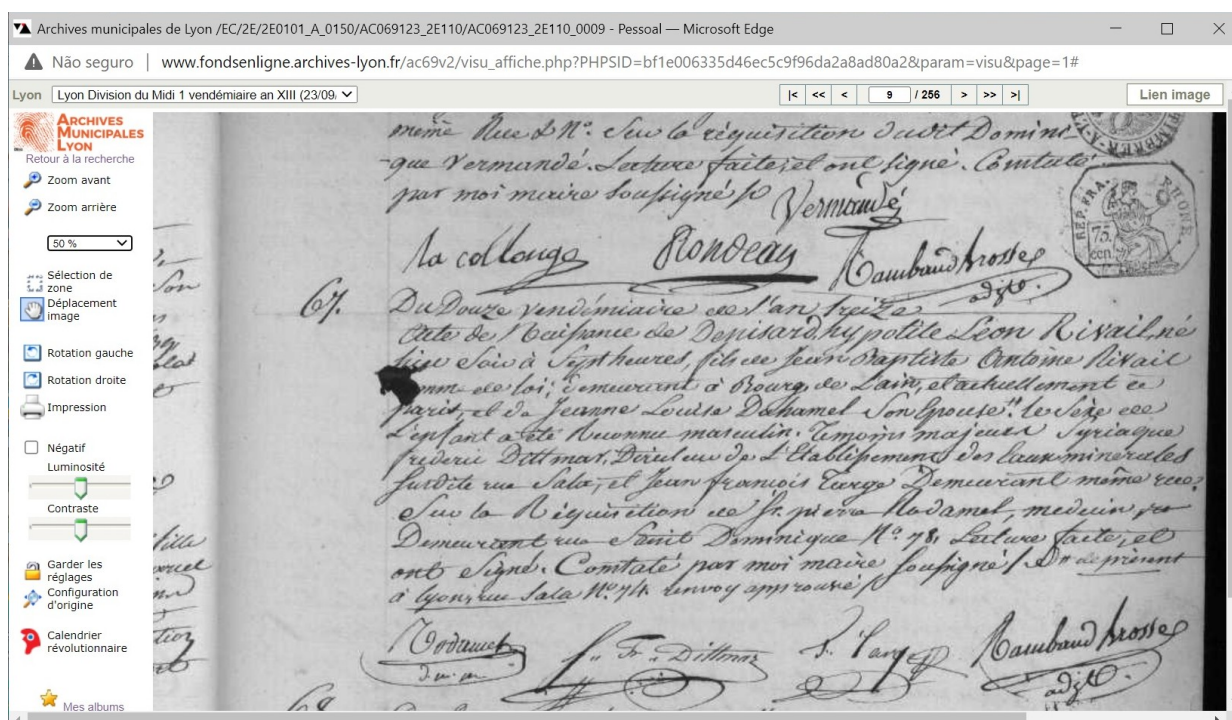 Archives municipales de Lyon /EC/2E/2E0101_A_0150/AC069123_2E110/AC069123_2E110_0009 - Pessoal — Microsoft Edge
Não seguro | www.fondsenligne.archives-lyon.fr/ac69v2/visu_affiche.php?PHPSID=bf1e006335d46ec5c9f96da2a8ad80a2&param=visu&page=1#
Lyon Lyon Division du Midi 1 vendémiaire an XIII (23/09/ |< << < 9 / 256 > >> >| Lien image
ARCHIVES
MUNICIPALES
LYON
Retour à la recherche
Zoom avant
Zoom arrière
50 %
Sélection de
zone
Déplacement
image
Rotation gauche
Rotation droite
Impression
Négatif
Luminosité
Contraste
Garder les
réglages
Configuration
d'origine
Calendrier
révolutionnaire
Mes albums
même Rue & N°. Sur la réquisition dudit Domini-
-que Vermandé. Lecture faite, et ont signé. Constaté
par moi maire soussigné
Vermandé
la collonge Rondeau Rambaud brosses
adjt.
REP. FRA. RHONE
75
cen.
67. Du Douze vendémiaire de l'an treize
acte de Naissance de Denisard, hypolite Léon Rivail, né
hier soir à Sept heures, fils de Jean Baptiste Antoine Rivail
homme de loi, demeurant à Bourg de Lain, et actuellement à
paris, et de Jeanne Louise Duhamel son Epouse". le Sexe de
L'enfant a été Reconnu masculin. Temoins majeurs Syriaque
frederic Dittmar, Directeur de L'Etablissement des Eaux minerales
susdite rue Sala, et Jean francois Targe Demeurant même rue.
Sur la Réquisition de Sr. pierre Radamel, medecin
Demeurant rue Saint Dominique N°. 78. Lecture faite, et
ont Signé. Constaté par moi maire soussigné / de présent
à lyon, rue Sala N°. 74. renvoy approuvé /
Radamel
d. m. m. Fr. Dittmar Rambaud brosses
adjt.
68.